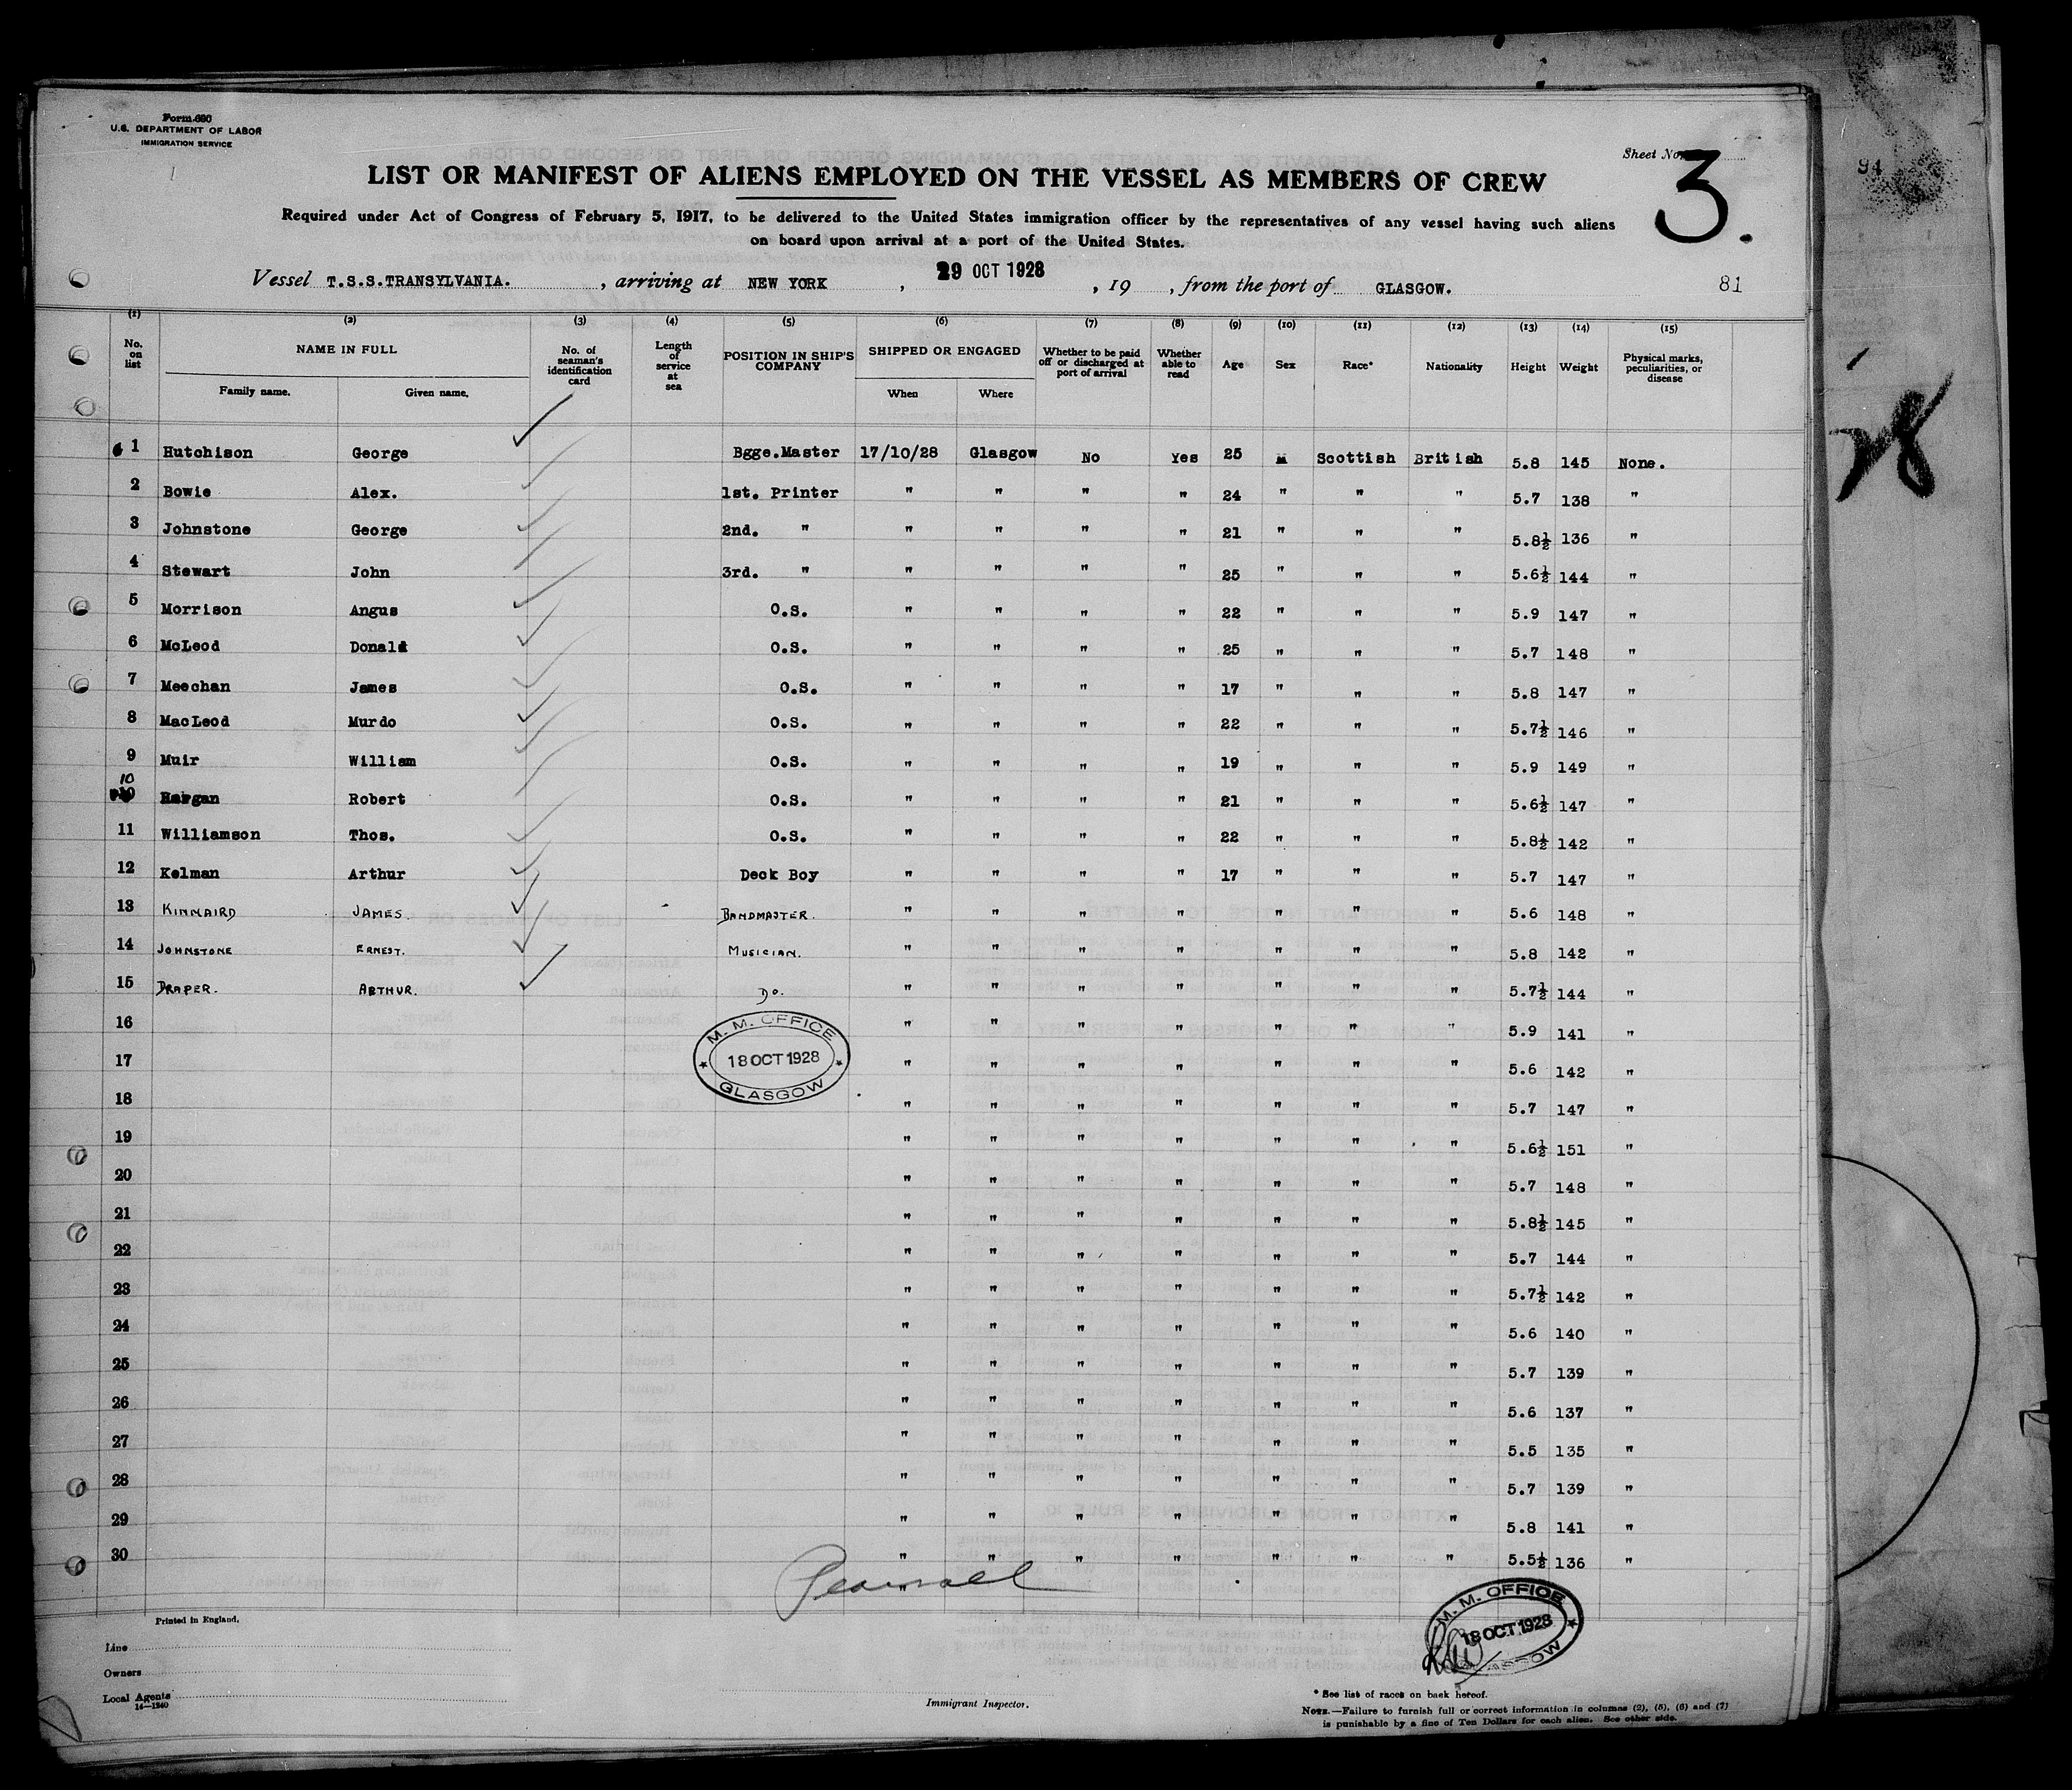 Form 690
U.S. DEPARTMENT OF LABOR
IMMIGRATION SERVICE
Sheet No. 3.
94
LIST OR MANIFEST OF ALIENS EMPLOYED ON THE VESSEL AS MEMBERS OF CREW
Required under Act of Congress of February 5, 1917, to be delivered to the United States immigration officer by the representatives of any vessel having such aliens
on board upon arrival at a port of the United States.
Vessel T.S.S.TRANSYLVANIA. , arriving at NEW YORK , 29 OCT 1928 , 19 , from the port of GLASGOW. 81
(1) (2) (3) (4) (5) (6) (7) (8) (9) (10) (11) (12) (13) (14) (15)
No. on list NAME IN FULL Family name. Given name. No. of seaman's identification card Length of service at sea POSITION IN SHIP'S COMPANY SHIPPED OR ENGAGED When Where Whether to be paid off or discharged at port of arrival Whether able to read Age Sex Race* Nationality Height Weight Physical marks, peculiarities, or disease
1 Hutchison George Bgge.Master 17/10/28 Glasgow No Yes 25 M Scottish British 5.8 145 None.
2 Bowie Alex. 1st. Printer " " " " 24 " " " 5.7 138 "
3 Johnstone George 2nd. " " " " " 21 " " " 5.8½ 136 "
4 Stewart John 3rd. " " " " " 25 " " " 5.6½ 144 "
5 Morrison Angus O.S. " " " " 22 " " " 5.9 147 "
6 McLeod Donald O.S. " " " " 25 " " " 5.7 148 "
7 Meechan James O.S. " " " " 17 " " " 5.8 147 "
8 MacLeod Murdo O.S. " " " " 22 " " " 5.7½ 146 "
9 Muir William O.S. " " " " 19 " " " 5.9 149 "
10 Hargan Robert O.S. " " " " 21 " " " 5.6½ 147 "
11 Williamson Thos. O.S. " " " " 22 " " " 5.8½ 142 "
12 Kelman Arthur Deck Boy " " " " 17 " " " 5.7 147 "
13 KINNAIRD JAMES. BANDMASTER. " " " " " " " 5.6 148 "
14 JOHNSTONE ERNEST. MUSICIAN. " " " " " " " 5.8 142 "
15 DRAPER. ARTHUR. Do. " " " " " " " 5.7½ 144 "
16 " " " " " " " 5.9 141 "
17 " " " " " " " 5.6 142 "
18 " " " " " " " 5.7 147 "
19 " " " " " " " 5.6½ 151 "
20 " " " " " " " 5.7 148 "
21 " " " " " " " 5.8½ 145 "
22 " " " " " " " 5.7 144 "
23 " " " " " " " 5.7½ 142 "
24 " " " " " " " 5.6 140 "
25 " " " " " " " 5.7 139 "
26 " " " " " " " 5.6 137 "
27 " " " " " " " 5.5 135 "
28 " " " " " " " 5.7 139 "
29 " " " " " " " 5.8 141 "
30 " " " " " " " 5.5½ 136 "
"
M. M. OFFICE
18 OCT 1928
GLASGOW
M. M. OFFICE
18 OCT 1928
GLASGOW
Printed in England.
Line
Owners
Local Agents
14—1240
Immigrant Inspector.
* See list of races on back hereof.
NOTE.—Failure to furnish full or correct information in columns (2), (5), (6) and (7)
is punishable by a fine of Ten Dollars for each alien. See other side.